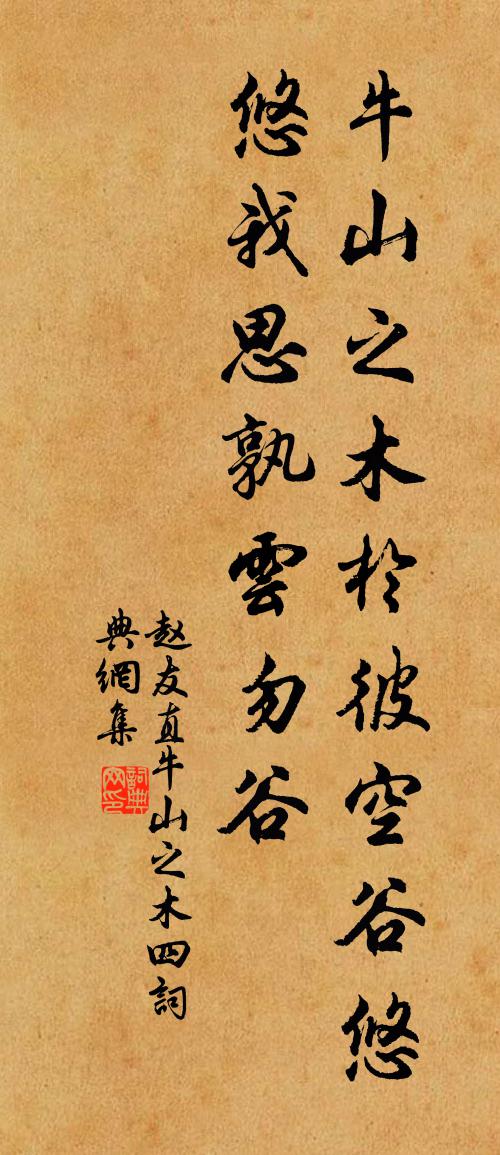 牛山之木於彼空谷悠
悠我思孰雲勿谷
赵友直牛山之木四詞
典網集
詞典
网印